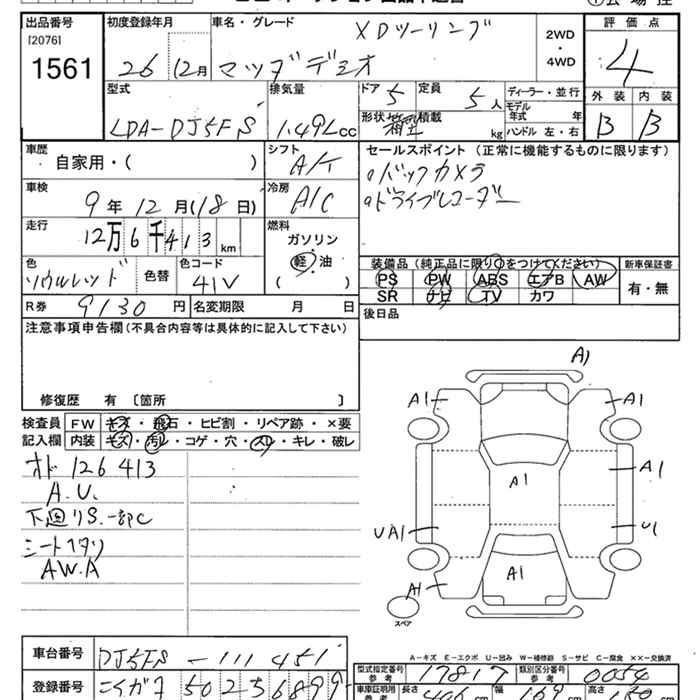 出品番号
[2076]
1561
初度登録年月
26 12月
車名・グレード
XDツーリング
マツダデミオ
2WD
・
4WD
評価点
4
外装 内装
B B
型式
LDA-DJ5FS
排気量
1.49Lcc
ドア 5
定員 5人
形状 箱型
積載 kg
ディーラー・並行
モデル年式 年
ハンドル 左・右
車歴
自家用・( )
シフト
A/T
セールスポイント（正常に機能するものに限ります）
バックカメラ
ドライブレコーダー
車検
9年12月(18日)
冷房
A/C
走行
12万6千413km
燃料
ガソリン
軽・油
( )
色
ソウルレッド
色替
色コード
41V
装備品（純正品に限り○をつけてください）
PS PW ABS エアB AW
SR ナビ TV カワ
新車保証書
有・無
R券 9130円
名変期限 月 日
後日品
注意事項申告欄(不具合内容等は具体的に記入して下さい)
修復歴 有〔箇所 〕
検査員
記入欄
FW キズ・飛石・ヒビ割・リペア跡・×要
内装 キズ・汚レ・コゲ・穴・スレ・キレ・破レ
オド126413
A.U.
下廻りS.一部C
シートヘタリ
AW.A
A1
A1
A1
A1
A1
UA1
U1
A1
A1
スペア
A－キズ E－エクボ U－凹み W－補修跡 S－サビ C－腐食 ××－交換済
車台番号
DJ5FS-111451
型式指定番号
参考
17817
類別区分番号
参考
0054
登録番号
車庫証明用
参考
長さ
cm
幅 169 cm
高さ
cm